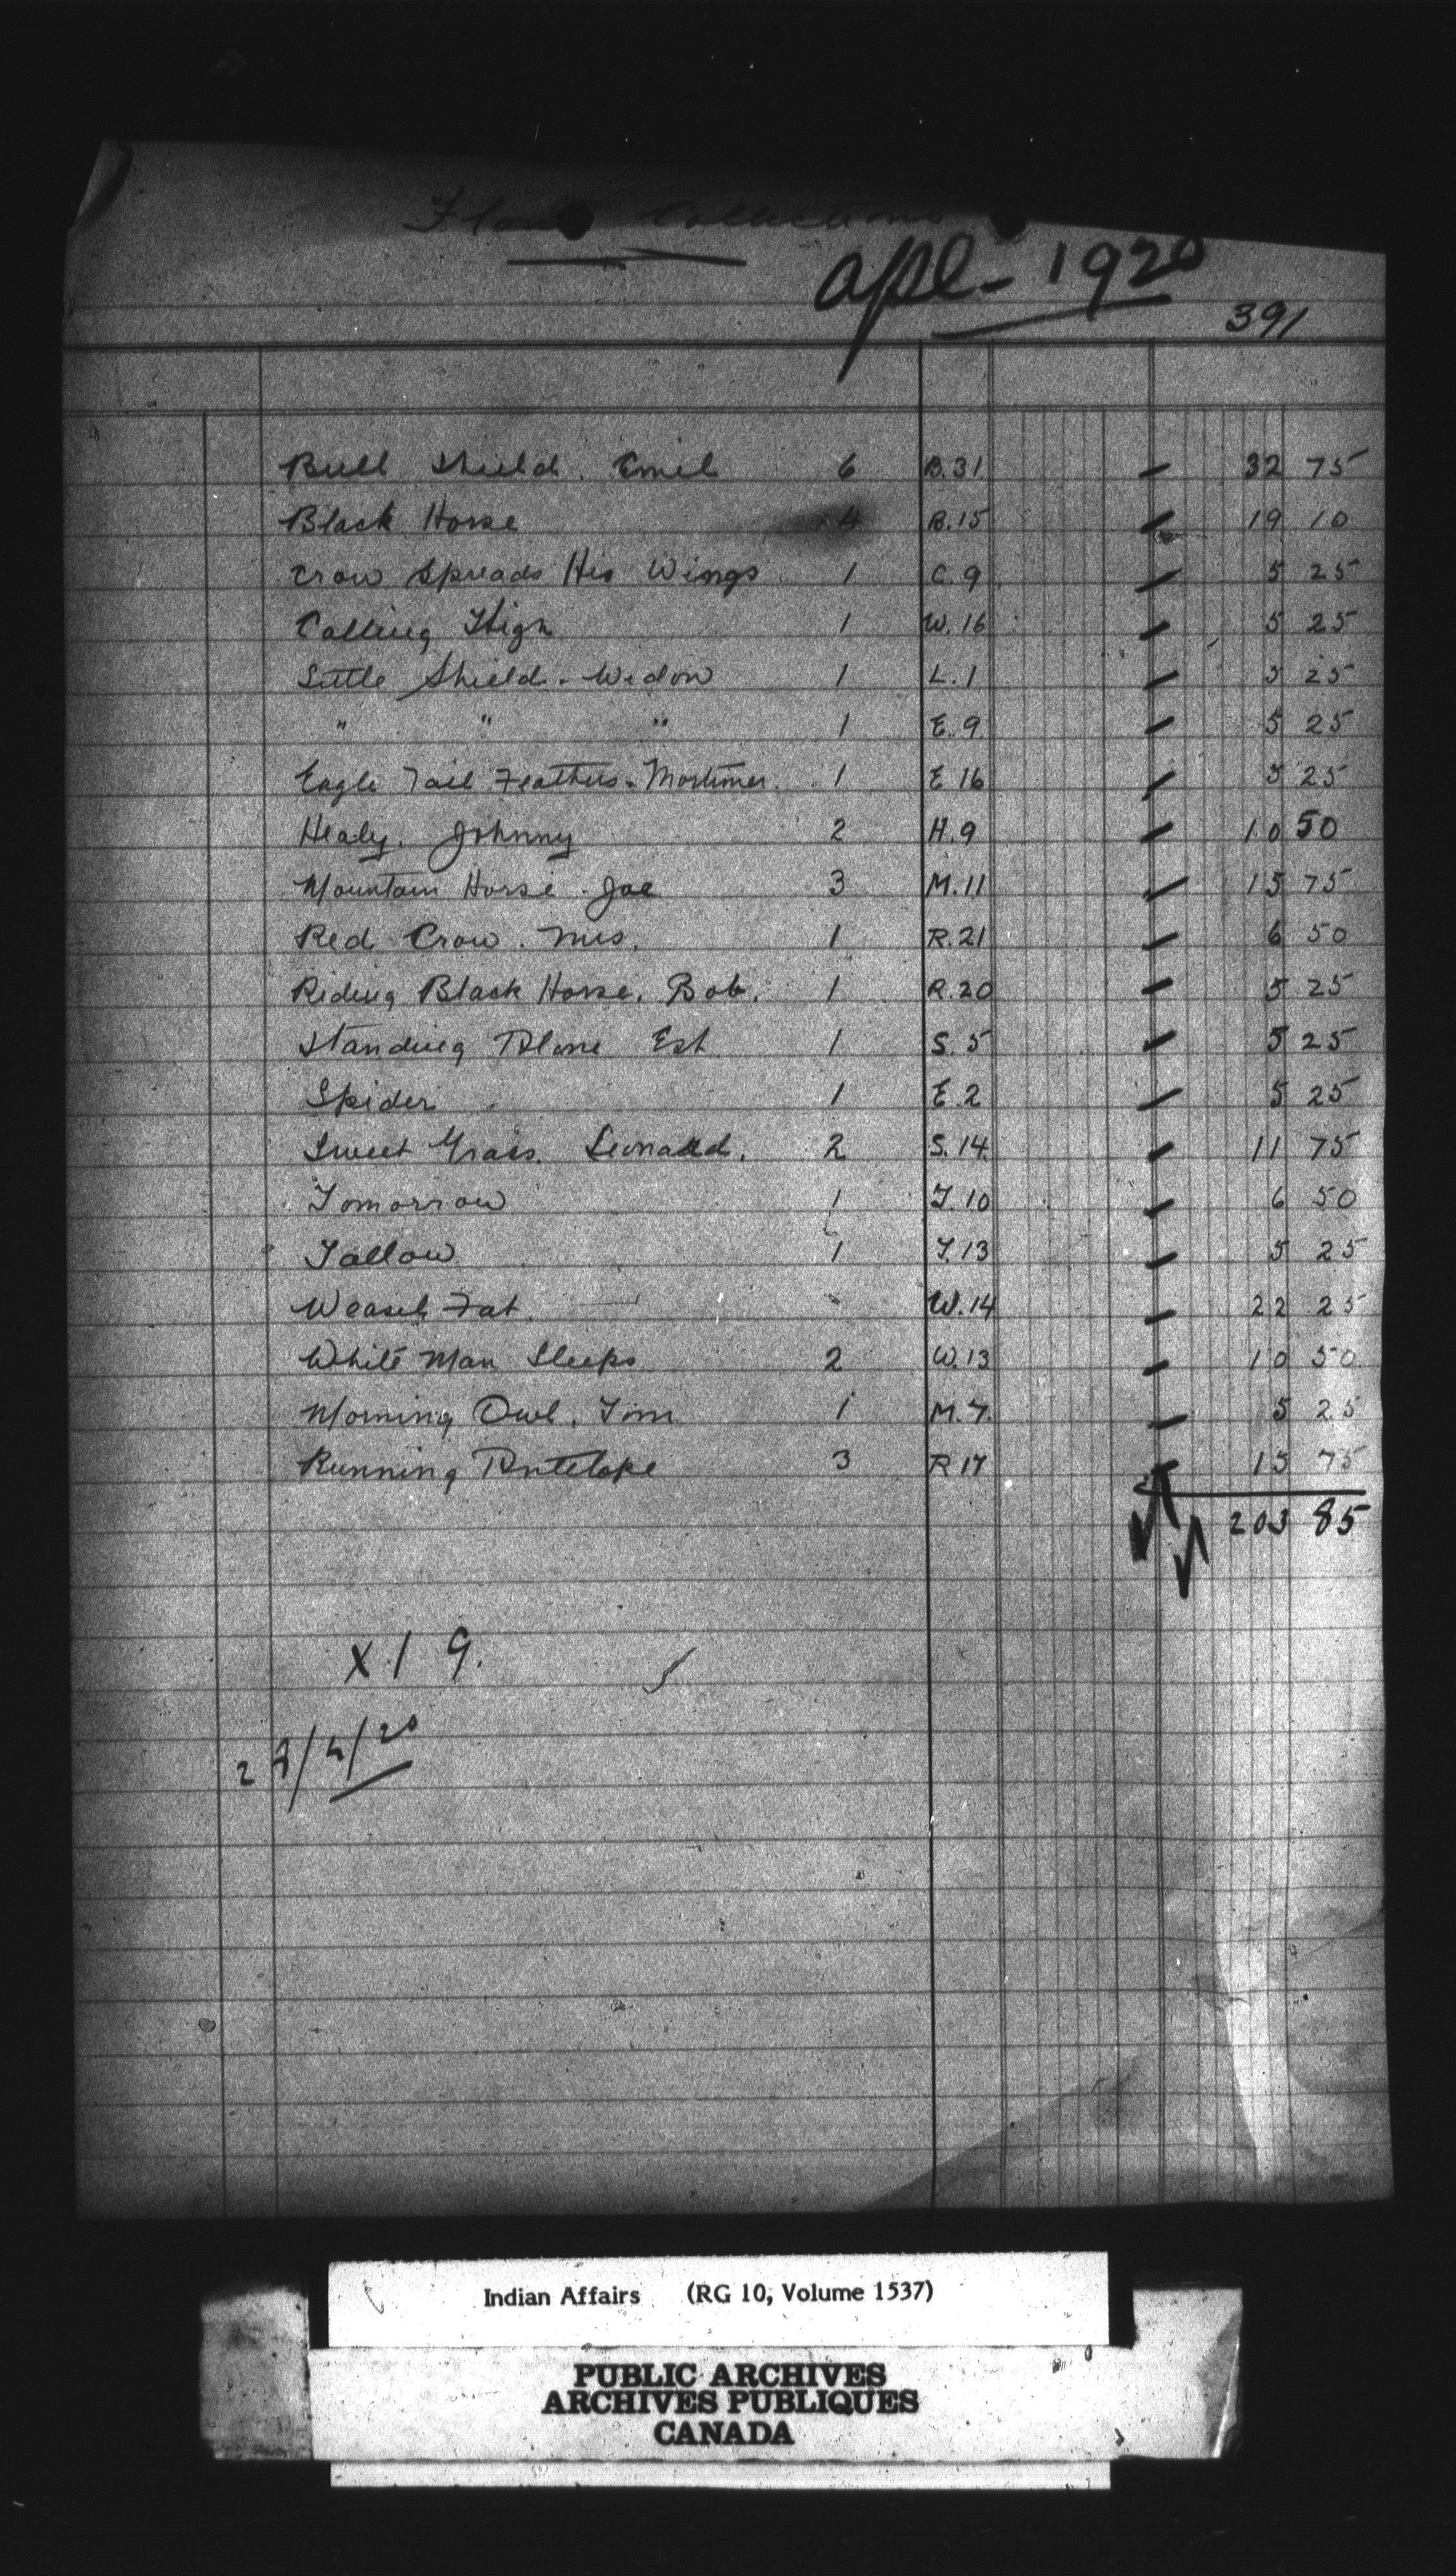 Flour Collections
Apl - 1920
391
Bull Shield. Emil 6 B.31 32 75
Black Horse 4 B.15 19 10
Crow Spreads His Wings 1 C.9 5 25
Calling High 1 W.16 5 25
Little Shield. Widow 1 L.1 5 25
" " " 1 E.9 5 25
Eagle Tail Feathers. Mortimer. 1 E 16 5 25
Healy. Johnny 2 H.9 10 50
Mountain Horse. Joe 3 M.11 15 75
Red Crow. Mrs. 1 R.21 6 50
Riding Black Horse. Bob. 1 R.20 5 25
Standing Alone Est 1 S.5 5 25
Spider 1 E.2 5 25
Sweet Grass. Leonard. 2 S.14 11 75
Tomorrow 1 T.10 6 50
Tallow 1 T.13 5 25
Weasel Fat. W.14 22 25
White Man Sleeps 2 W.13 10 50
Morning Owl. Tom 1 M.7. 5 25
Running Antelope 3 R 17 15 75
203 85
X.1 9.
Indian Affairs (RG 10, Volume 1537)
PUBLIC ARCHIVES
ARCHIVES PUBLIQUES
CANADA